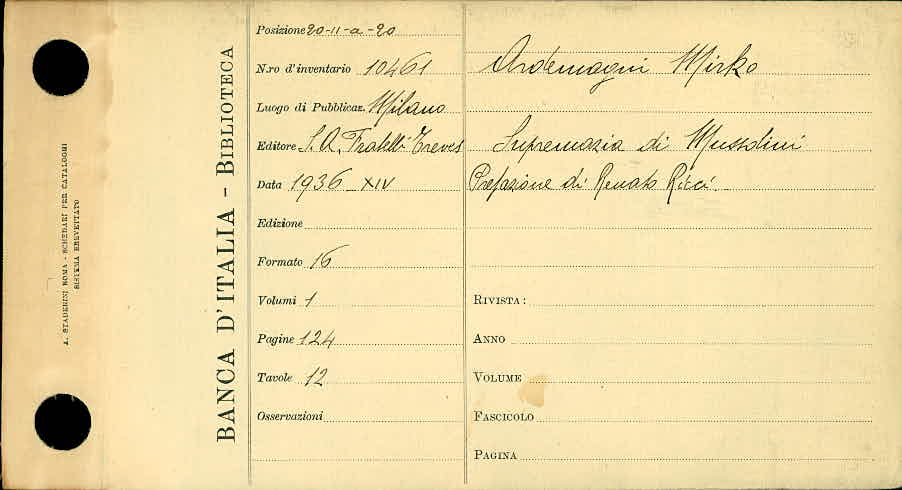 A. STADERINI ROMA - SCHEDARI PER CATALOGHI
SISTEMA BREVETTATO
BANCA D'ITALIA - BIBLIOTECA
Posizione 20-11-a-20
N.ro d'inventario 10461
Luogo di Pubblicaz. Milano
Editore S.A. Fratelli Treves
Data 1936 XIV
Edizione
Formato 16
Volumi 1
Pagine 124
Tavole 12
Osservazioni
Ardemagni Mirko
Supremazia di Mussolini
Prefazione di Renato Ricci.
RIVISTA:
ANNO
VOLUME
FASCICOLO
PAGINA